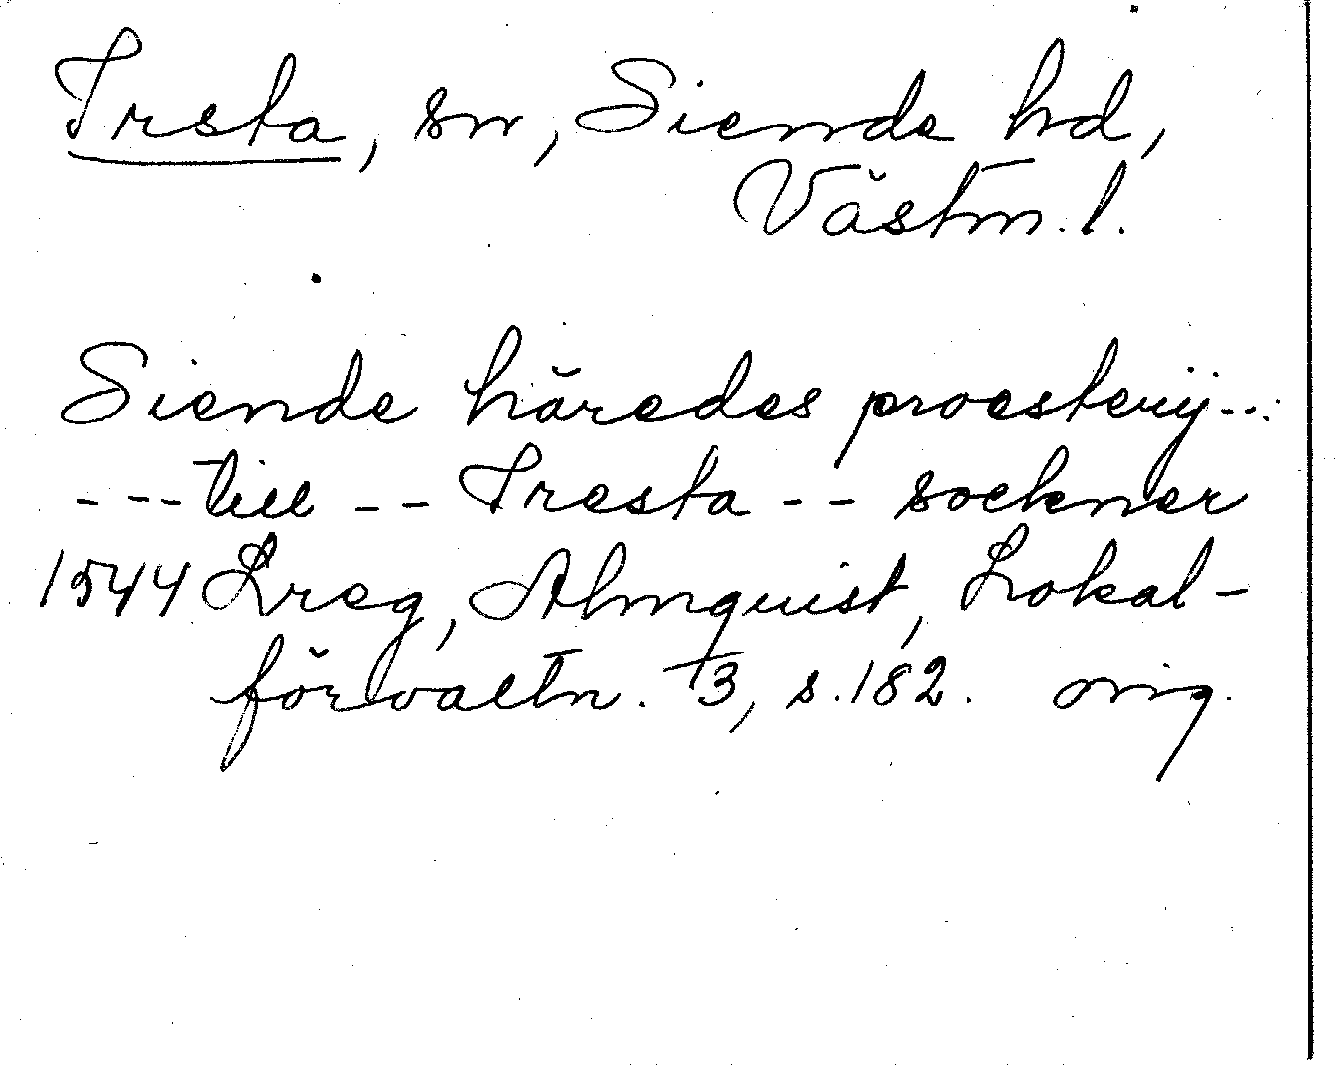 Irsta, sn, Siende hd,
Västm. l.
Siende häredes proesterij---
---till -- Iresta -- soekner
1544 Lreg, Almquist, Lokal-
förvaltn. 3, s. 182. orig.